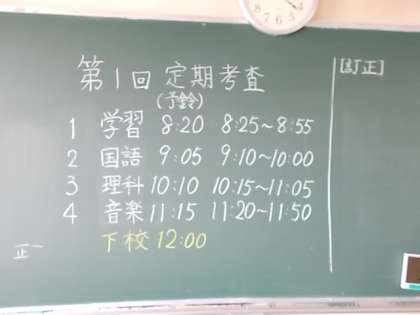 第1回 定期考査
(予鈴)
1 学習 8:20 8:25～8:55
2 国語 9:05 9:10～10:00
3 理科 10:10 10:15～11:05
4 音楽 11:15 11:20～11:50
下校 12:00
[訂正]
正一
8
7
6
5
4